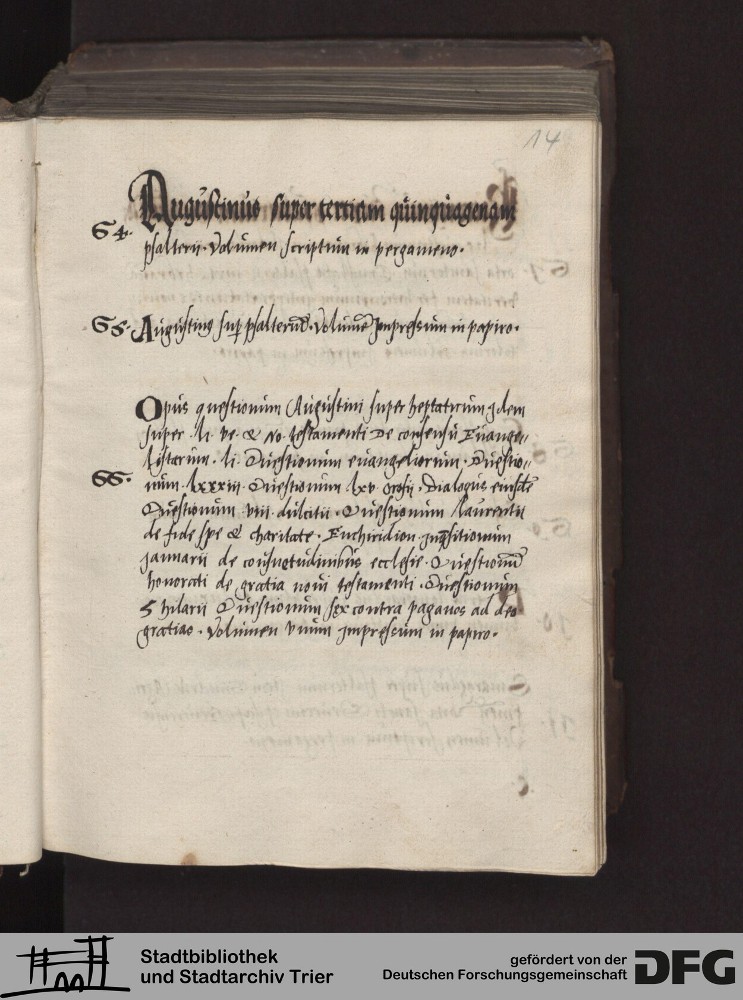 14
Augustinus super tertiam quinquagenam
G4. psalterii. Volumen scriptum in pergameno.
G5. Augustinus sup psalteriu. Volume Impressum in papiro.
Opus questionum Augustini super heptaticum Idem
super. li. ve. & No. testamenti De consensu Euange„
listarum. li. Questionum euangeliorum. Questio„
GG. num. lxxxiii. Questionum lxv orosii. Dialogus eiusde
Questionum viii. dulcitii. Questionum laurentii
de fide spe & charitate. Enchiridion. inqsitionum
Januarii de consuetudinibus ecclesie. Questionu
honorati de gratia noui testamenti. Questionum
S hilarii Questionum sex contra paganos ad deo
gratias. Volumen vnum impressum in papiro.
Stadtbibliothek
und Stadtarchiv Trier
gefördert von der
Deutschen Forschungsgemeinschaft
DFG